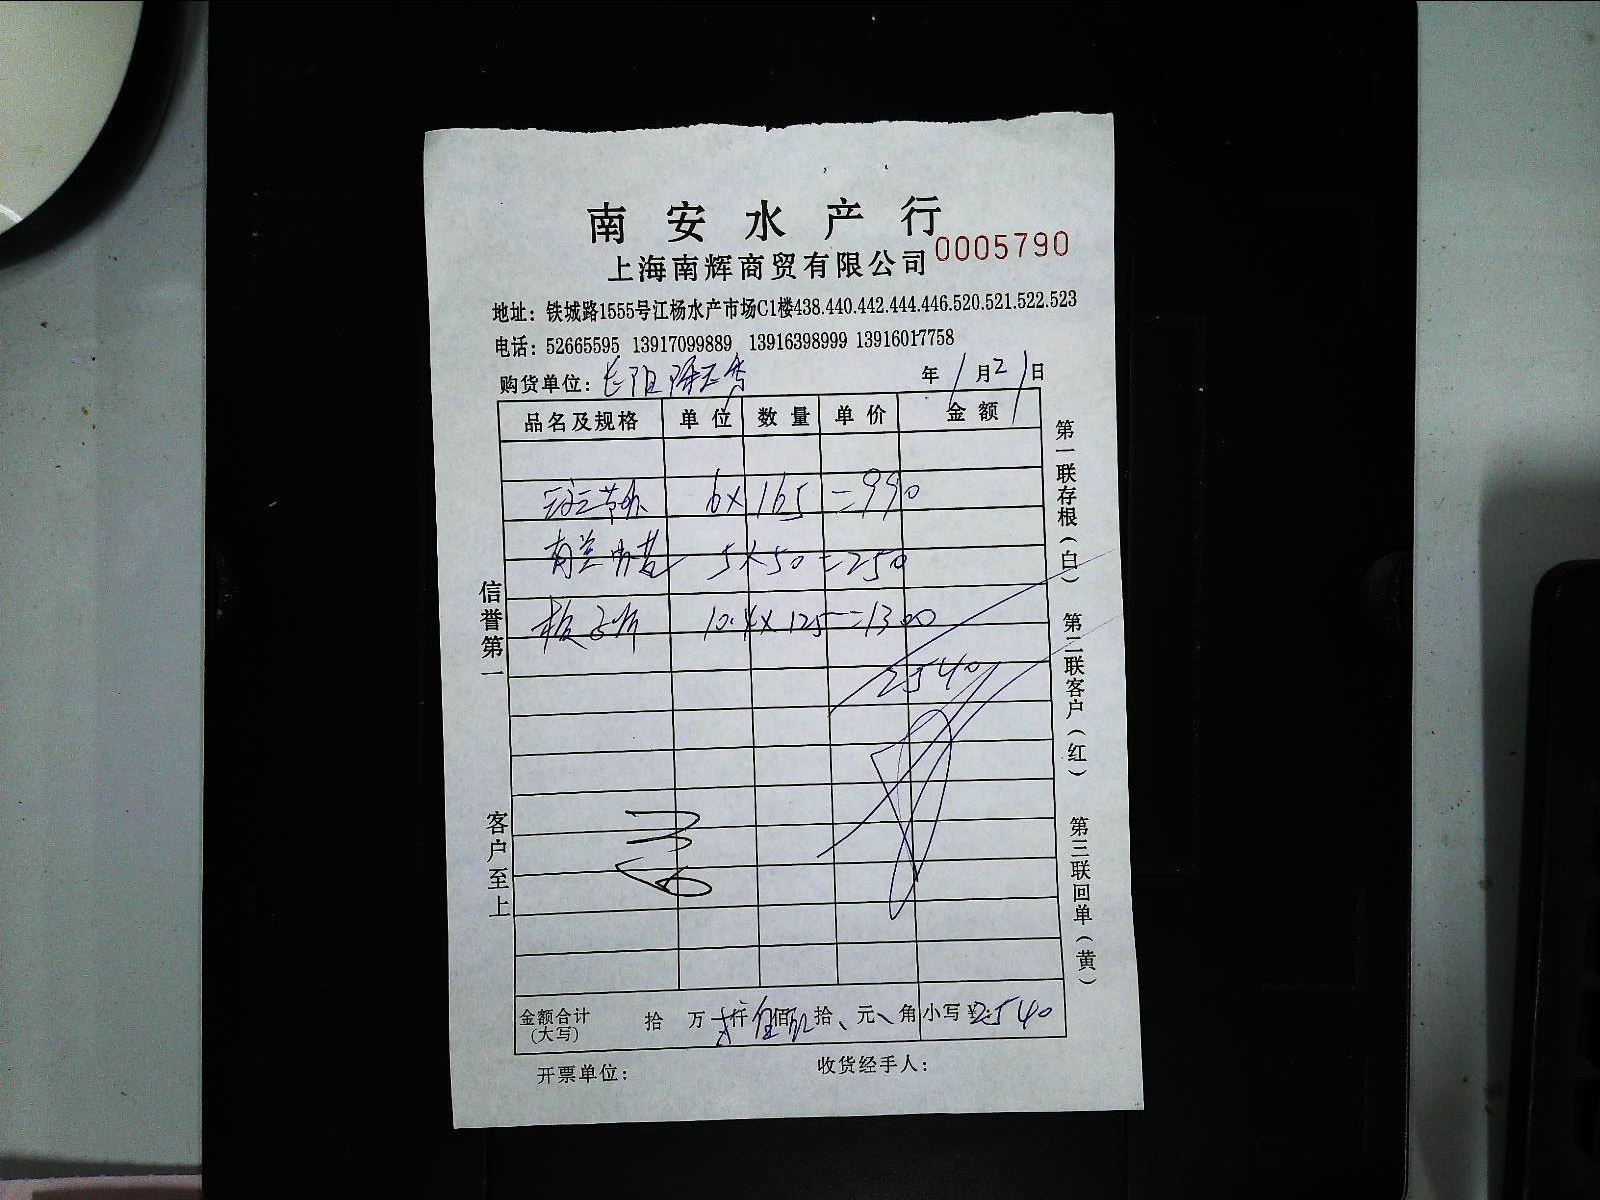 南安水产行
0005790
上海南辉商贸有限公司
地址：铁城路1555号江杨水产市场C1楼438.440.442.444.446.520.521.522.523
电话：52665595 13917099889 13916398999 13916017758
购货单位：长阳
年1月21日
品名及规格 单位 数量 单价 金额
6×165=990
5×50=250
10.4×125=1300
2540
金额合计(大写) 拾 万 仟 佰 拾 元 角 小写¥2540
开票单位： 收货经手人：
信誉第一 客户至上
第一联存根（白） 第二联客户（红） 第三联回单（黄）